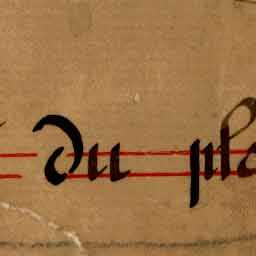 du pla